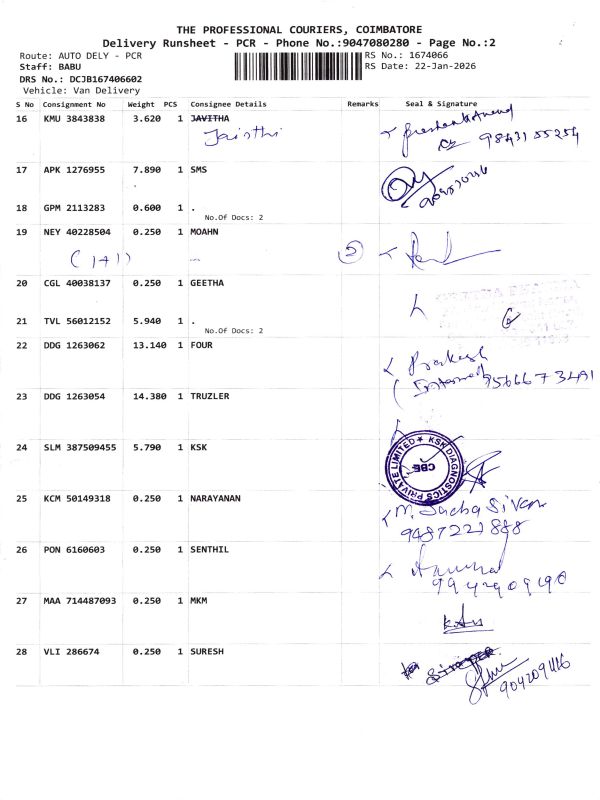 THE PROFESSIONAL COURIERS, COIMBATORE
Delivery Runsheet - PCR - Phone No.:9047080280 - Page No.:2
Route: AUTO DELY - PCR
RS No.: 1674066
Staff: BABU
RS Date: 22-Jan-2026
DRS No.: DCJB167406602
Vehicle: Van Delivery
S No Consignment No Weight PCS Consignee Details Remarks Seal & Signature
16 KMU 3843838 3.620 1 JAVITHA
9843155254
17 APK 1276955 7.890 1 SMS
18 GPM 2113283 0.600 1 .
No.Of Docs: 2
19 NEY 40228504 0.250 1 MOAHN
(141) 2
20 CGL 40038137 0.250 1 GEETHA
21 TVL 56012152 5.940 1 .
No.Of Docs: 2
22 DDG 1263062 13.140 1 FOUR
Prakash
23 DDG 1263054 14.380 1 TRUZLER
24 SLM 387509455 5.790 1 KSK
KSK DIAGNOSTICS PRIVATE LIMITED
CBE
25 KCM 50149318 0.250 1 NARAYANAN
M. Sivan
9487221888
26 PON 6160603 0.250 1 SENTHIL
9942909190
27 MAA 714487093 0.250 1 MKM
28 VLI 286674 0.250 1 SURESH